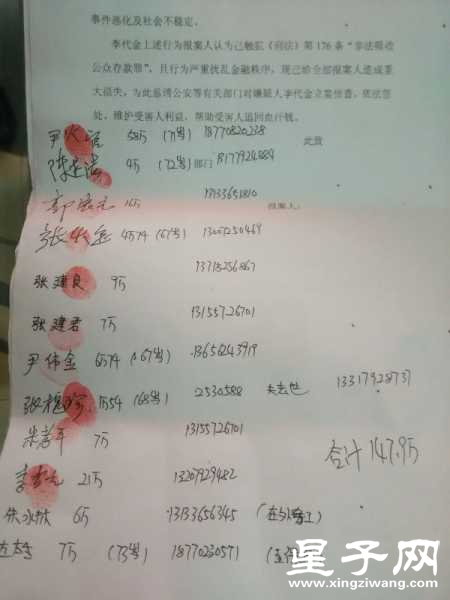 事件恶化及社会不稳定。
李代金上述行为报案人认为已触犯《刑法》第 176 条“非法吸收
公众存款罪”，且行为严重扰乱金融秩序，现已给全部报案人造成重
大损失，为此恳请公安等有关部门对嫌疑人李代金立案侦查，依法惩
处，维护受害人利益，帮助受害人追回血汗钱。
此致
尹火 58万 (71岁) 18770820238
陈 4万 (72岁) 部门 18177924884
郭 元 1万 13133651810
报案人：
张 4万74 (67岁) 13007250469
13715256867
张建良 9万
张建君 7万 13155726701
尹伟金 6万74 (67岁) 13656243919
张 1万54 (68岁) 2530588 夫去世 13317928737
朱 平 7万 13155726701
合计 147.9万
李 元 21万 13207929482
朱水 6万 13133656345 (在外 工)
7万 (73岁) 18770230571
星子网
www.xingziwang.com